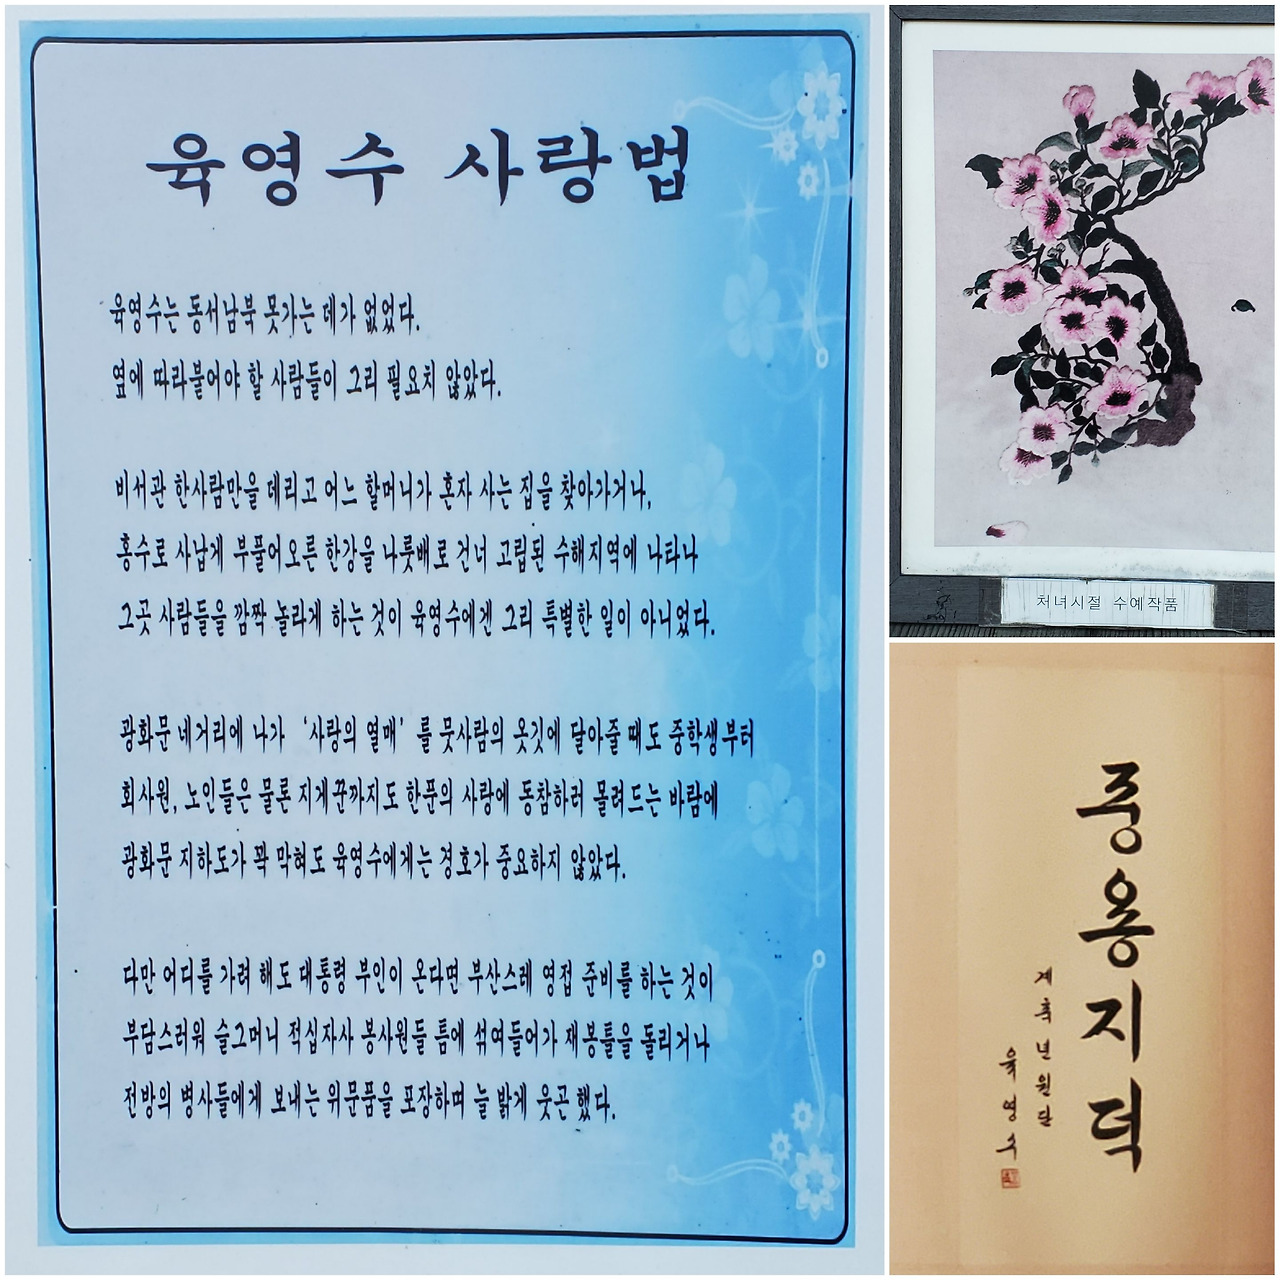 육영수 사랑법
육영수는 동서남북 못가는 데가 없었다.
옆에 따라붙어야 할 사람들이 그리 필요치 않았다.
비서관 한사람만을 데리고 어느 할머니가 혼자 사는 집을 찾아가거나,
홍수로 사납게 부풀어오른 한강을 나룻배로 건너 고립된 수해지역에 나타나
그곳 사람들을 깜짝 놀라게 하는 것이 육영수에겐 그리 특별한 일이 아니었다.
광화문 네거리에 나가 '사랑의 열매' 를 뭇사람의 옷깃에 달아줄 때도 중학생부터
회사원, 노인들은 물론 지게꾼까지도 한푼의 사랑에 동참하러 몰려드는 바람에
광화문 지하도가 꽉 막혀도 육영수에게는 경호가 중요하지 않았다.
다만 어디를 가려 해도 대통령 부인이 온다면 부산스레 영접 준비를 하는 것이
부담스러워 슬그머니 적십자사 봉사원들 틈에 섞여들어가 재봉틀을 돌리거나
전방의 병사들에게 보내는 위문품을 포장하며 늘 밝게 웃곤 했다.
처녀시절 수예작품
중용지덕
계축년원단
육영수